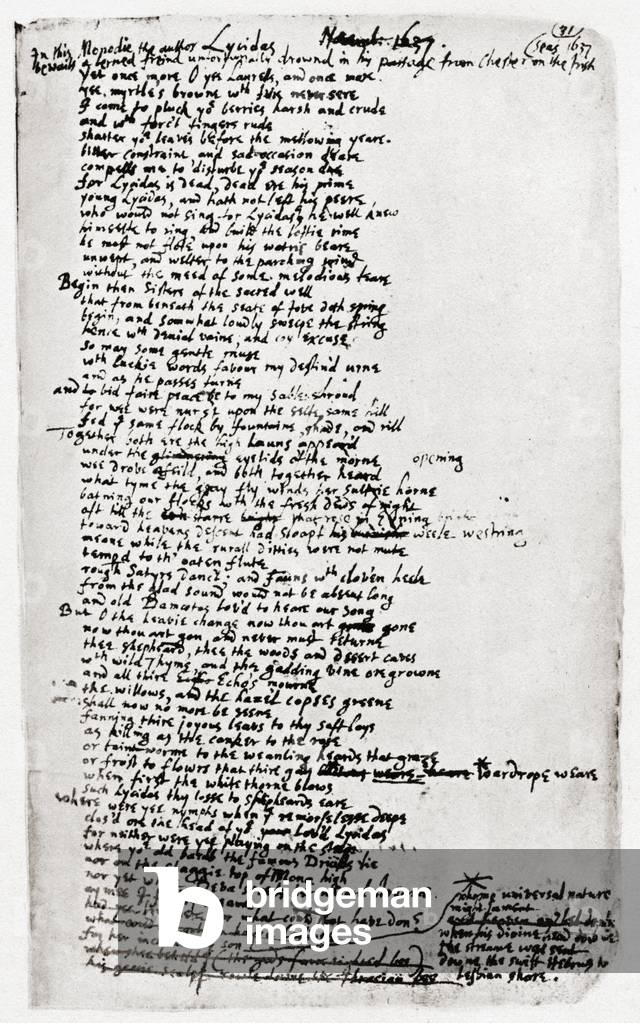 Lycidas Novemb: 1637. (31
In this Monodie the author
bewails a lerned freind unfortunatly drownd in his passage from Chester on the Irish seas 1637
yet once more O ye laurells, and once more
yee myrtle's browne wth never sere
I come to pluck yor berries harsh and crude
and wth forc't fingers rude
shatter yor leaves before the mellowing yeare.
bitter constraint, and sad occasion deare
compells me to disturbe yor season due
for Lycidas is dead, dead ere his prime
young Lycidas, and hath not left his peere
who would not sing for Lycidas, he well knew
himselfe to sing, and build the loftie rime
he must not flote upon his watrie beare
unwept, and welter to the parching wind
without the meed of some melodious teare
Begin then Sisters of the sacred well
that from beneath the seate of Jove doth spring
begin, and somwhat loudly sweepe the string
hence wth denial vaine, and coy excuse
so may some gentle muse
wth luckie words favour my destin'd urne
and as he passes turne
and to bid faire peace be to my sable shroud
for wee were nurst upon the selfe same hill
fed ye same flock by fountaine, shade, and rill
Together both ere the high launs appeard
under the glimmering eyelids of the morne opening
wee drove afeild, and both together heard
what tyme the gray fly winds her sultrie horne
batning our flocks with the fresh dews of night
oft till the starre that rose in Evning bright
toward heavens descent had sloapt his weele westring
meane while the rurall ditties were not mute
temper'd to th' oaten flute
rough Satyrs danc't, and Fauns wth cloven heele
from the glad sound would not be absent long
and old Damoetas lov'd to heare our song
But O the heavie change now thou art gone
now thou art gon, and never must returne
thee shepheard, thee the woods and desert caves
wth wild Thyme, and the gadding vine oregrowne
and all thire Echo's mourne
the willows, and the hazel copses greene
shall now no more be seene
fanning thire joyous leavs to thy soft lays
as killing as the canker to the rose
or taint-worme to the weanling heards that graze
or frost to flowrs that thire gay wardrope weare
when first the white thorne blows
such Lycidas thy losse to shepheards eare
where were yee nymphs when ye remorselesse deepe
clos'd ore the head of yor lov'd Lycidas
for neither were yee playing on the steepe
where yor old bards the famous Druids lie
nor on the shaggie top of Mona high
nor yet
ay mee I
had yee for what could that have don
what could
for her
son
whome universal nature
might lament
and heaven and hel
when his divine head downe
the streame was sent
downe the swift Hebrus to
Lesbian shore.
bridgeman
images